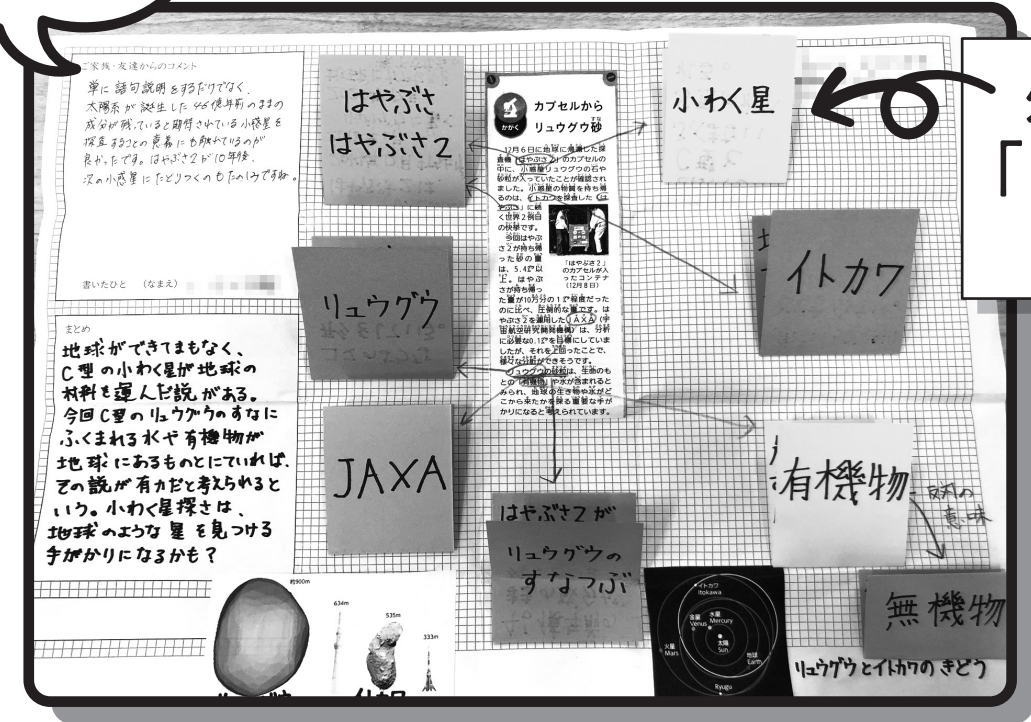 ご家族・友達からのコメント
単に語句説明をするだけでなく、
太陽系が誕生した46億年前のままの
成分が残っていると期待されている小惑星を
探査することの意義にも触れているのが
良かったです。はやぶさ2が10年後、
次の小惑星にたどりつくのもたのしみですね。
書いたひと （なまえ）
まとめ
地球ができてまもなく、
C型の小わく星が地球の
材料を運んだ説がある。
今回C型のリュウグウのすなに
ふくまれる水や有機物が
地球にあるものとにていれば、
その説が有力だと考えられると
いう。小わく星探さは、
地球のような星を見つける
手がかりになるかも？
はやぶさ
はやぶさ2
リュウグウ
JAXA
かがく
カプセルから
リュウグウ砂
すな
12月6日に地球に帰還した探
査機「はやぶさ2」のカプセルの
中に、小惑星リュウグウの石や
砂粒が入っていたことが確認され
ました。小惑星の物質を持ち帰
るのは、イトカワを探査した「は
やぶさ」に続
く世界2例目
の快挙です。
今回はやぶ
さ2が持ち帰
った砂の量
は、5.4㌘以
上。はやぶ
さが持ち帰っ
た量が10万分の1㌘程度だった
のに比べ、圧倒的な量です。は
やぶさ2を運用したJAXA（宇
宙航空研究開発機構）は、分析
に必要な0.1㌘を目標にしていま
したが、それを上回ったことで、
様々な分析ができそうです。
リュウグウの砂粒は、生命のも
との「有機物」や水が含まれると
みられ、地球の生き物や水がど
こから来たかを探る重要な手が
かりになると考えられています。
「はやぶさ2」
のカプセルが入
ったコンテナ
（12月8日）
はやぶさ2が
リュウグウの
すなつぶ
小わく星
イトカワ
有機物
反対の
意味
無機物
約900m
634m
535m
333m
イトカワ
Itokawa
金星
Venus
水星
Mercury
太陽
Sun
火星
Mars
地球
Earth
Ryugu
リュウグウとイトカワのきどう